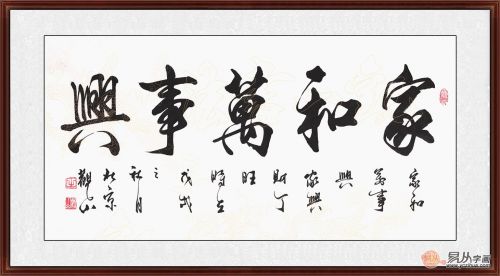 家和萬事興
家和
萬事
興
家興
財丁
旺
時在
戊戌
之
秋月
觀山
易从字画
www.yczihua.com